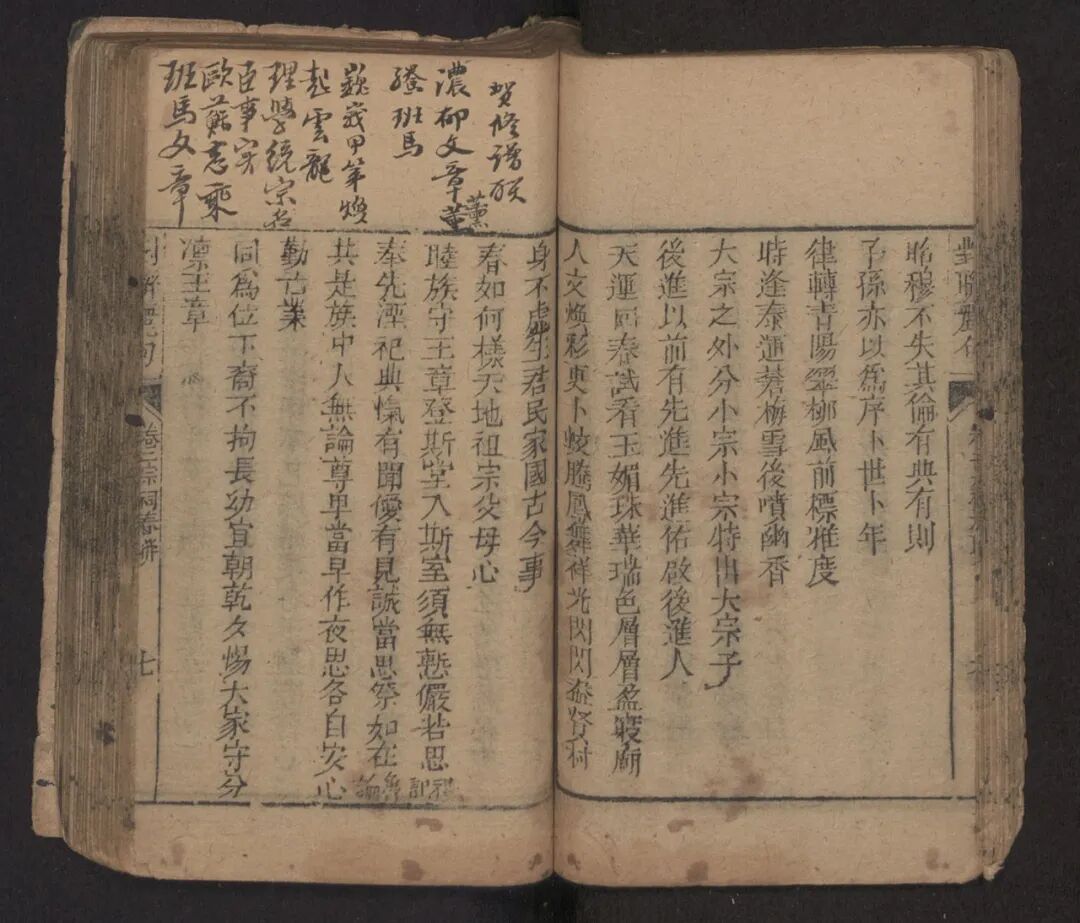 昭穆不失其倫有典有則
子孫亦以爲序卜世卜年
律轉青陽翠柳風前標雅度
時逢泰運若梅雪後噴幽香
大宗之外分小宗小宗特出大宗子
後進以前有先進先進佑啟後進人
天運回春試看玉媚珠華瑞色層層盈寢廟
人文煥彩更卜蛟騰鳳舞祥光閃閃聚賢村
賀修譜聯
濃柳文章薰
騰班馬
巍峩甲第煥
起雲龍
理學統宗
臣事實
歐蘇志乘
班馬文章
身不虛生君民家國古今事
春如何樣天地祖宗父母心
睦族守王章登斯堂入斯室須無慙儼若思
奉先湮祀典愾有聞優有見誠當思祭如在
共是族中人無論尊卑當早作夜思各自安心
勤古業
同爲位下裔不拘長幼宜朝乾夕惕大家守分
凜王章
卷二宗祠春聯
七